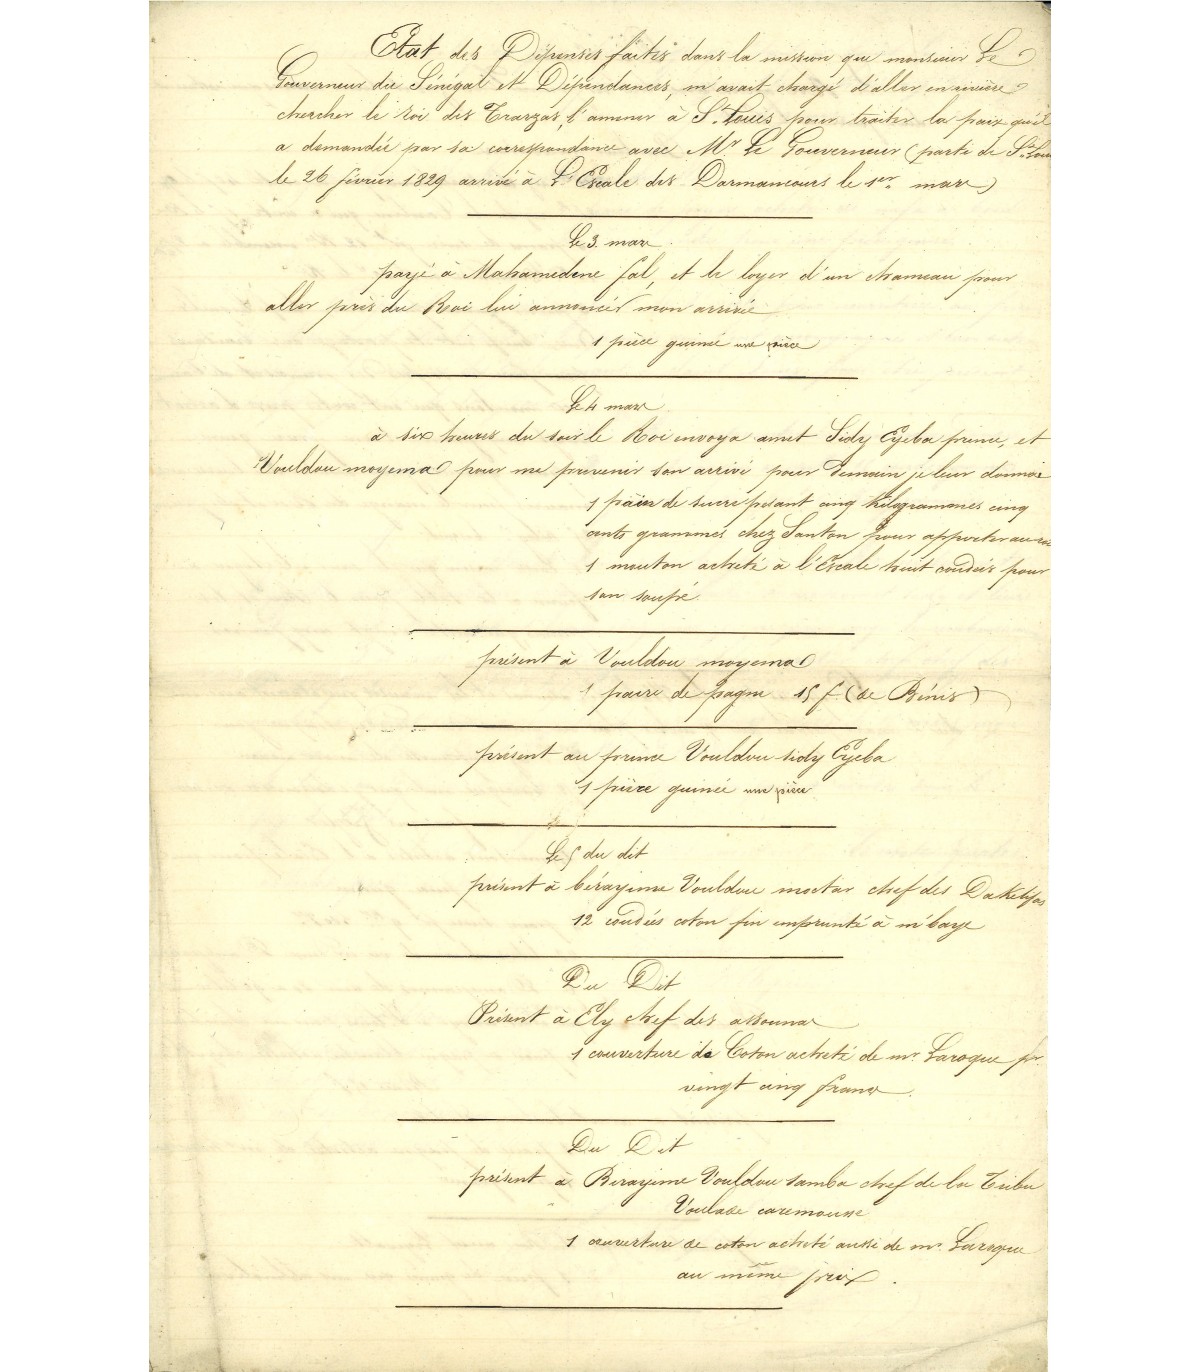 Etat des Dépenses faites dans la mission que monsieur Le
Gouverneur du Sénégal et Dépendances, m'avait chargé d'aller en rivière
chercher le roi des Trarzas, l'amener à St. Louis pour traiter la paix qu'il
a demandée par sa correspondance avec Mr Le Gouverneur (parti de St. Louis
le 26 février 1829 arrivé à L'Escale des Darmancours le 1er mars)
Le 3 mars
payé à Mahamedene fal, et le loyer d'un chameau pour
aller près du Roi lui annoncér mon arrivée
1 pièce guiné une pièce
Le 4 mars
à six heures du soir le Roi envoya amet Sidy Eyeba prince, et
Vouldou moyema pour me prevenir son arrivé pour demain je leur donnai
1 pain de sucre pesant cinq kilogrammes cinq
cents grammes chez Santon pour apporter au roi
1 mouton acheté à l'Escale huit coudés pour
son soupé
présent à Vouldou moyema
1 paire de pagne 15 f. (de Bénis)
présent au prince Vouldou sidy Eyeba
1 pièce guinée une pièce
Le 5 du dit
présent à bérayime Vouldou moctar chef des Dakelifas
12 coudés coton fin emprunté à m'baye
Du Dit
Présent à Ely chef des assounas
1 couverture de Coton acheté de mr. Laroque pr.
vingt cinq francs.
Du Dit
présent à Birayime Vouldou samba chef de la Tribu
Voulade caremousse
1 couverture de coton acheté aussi de mr. Laroque
au même prix.